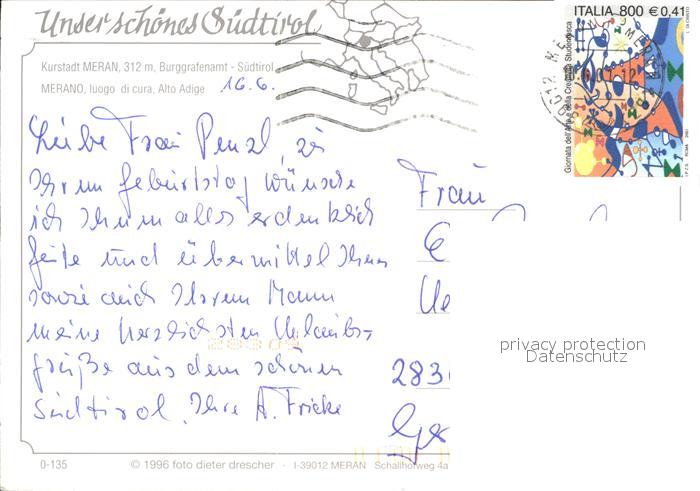 Unser schönes Südtirol
ITALIA 800 € 0,41
Giornata dell'Arte e della Creatività Studentesca
Kurstadt MERAN, 312 m, Burggrafenamt - Südtirol
MERANO, luogo di cura, Alto Adige
16.6.
Liebe Frau Penzl, zu
Ihrem Geburtstag wünsche
ich Ihnen alles erdenklich
Gute und übermittel Ihnen
sowie auch Ihrem Mann
meine herzlichsten Urlaubs-
grüße aus dem schönen
Südtirol. Ihre A. Fricke
Frau
283
privacy protection
Datenschutz
0-135 © 1996 foto dieter drescher · I-39012 MERAN Schallhofweg 4a